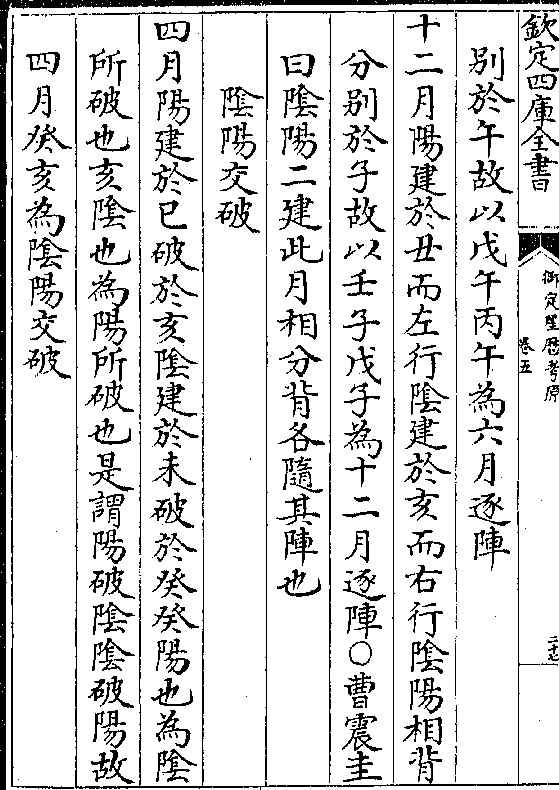 欽定四庫全書
御定星歷考原
卷五
二十七
別於午故以戊午丙午為六月逐陣
十二月陽建於丑而左行陰建於亥而右行陰陽相背
分別於子故以壬子戊子為十二月逐陣○曹震圭
曰陰陽二建此月相分背各隨其陣也
陰陽交破
四月陽建於巳破於亥陰建於未破於癸癸陽也為陰
所破也亥陰也為陽所破也是謂陽破陰陰破陽故
四月癸亥為陰陽交破